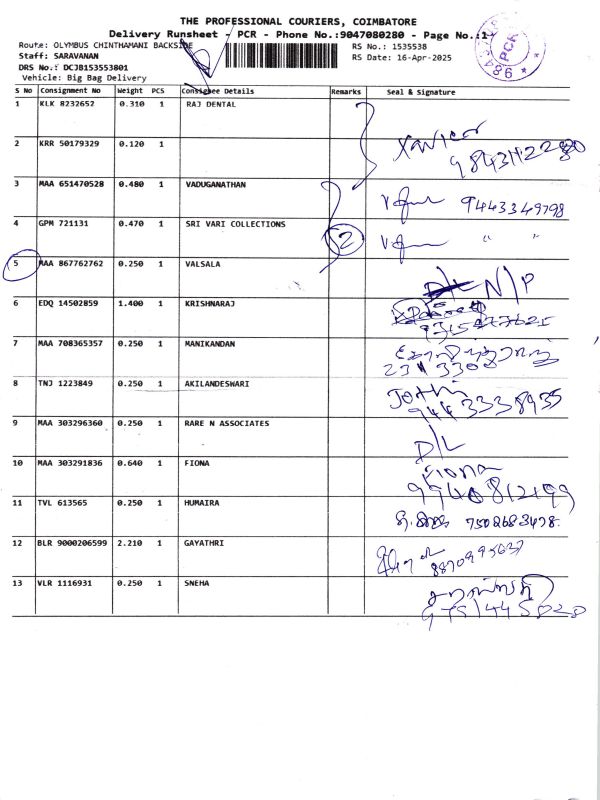 THE PROFESSIONAL COURIERS, COIMBATORE
Delivery Runsheet - PCR - Phone No.:9047080280 - Page No.:1
Route: OLYMBUS CHINTHAMANI BACKSIDE RS No.: 1535538
Staff: SARAVANAN RS Date: 16-Apr-2025
DRS No.: DCJB153553801
Vehicle: Big Bag Delivery
PCR
S No Consignment No Weight PCS Consignee Details Remarks Seal & Signature
1 KLK 8232652 0.310 1 RAJ DENTAL
2 KRR 50179329 0.120 1
3 MAA 651470528 0.480 1 VADUGANATHAN 9443349798
4 GPM 721131 0.470 1 SRI VARI COLLECTIONS 2 " "
5 MAA 867762762 0.250 1 VALSALA D/L N/P
6 EDQ 14502859 1.400 1 KRISHNARAJ
7 MAA 708365357 0.250 1 MANIKANDAN
8 TNJ 1223849 0.250 1 AKILANDESWARI Jothi
9443338935
9 MAA 303296360 0.250 1 RARE N ASSOCIATES D/L
10 MAA 303291836 0.640 1 FIONA Fiona
9940812199
11 TVL 613565 0.250 1 HUMAIRA 7502683478
12 BLR 9000206599 2.210 1 GAYATHRI 8870995637
13 VLR 1116931 0.250 1 SNEHA